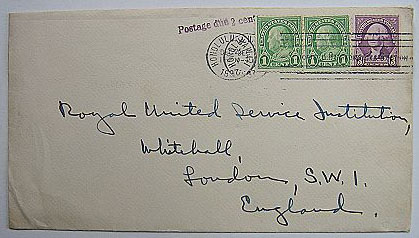 Postage due 2 cent
HONOLULU
1 CENT 1 1 CENT 1 3
Royal United Service Institution,
Whitehall,
London, S.W.1.
England.